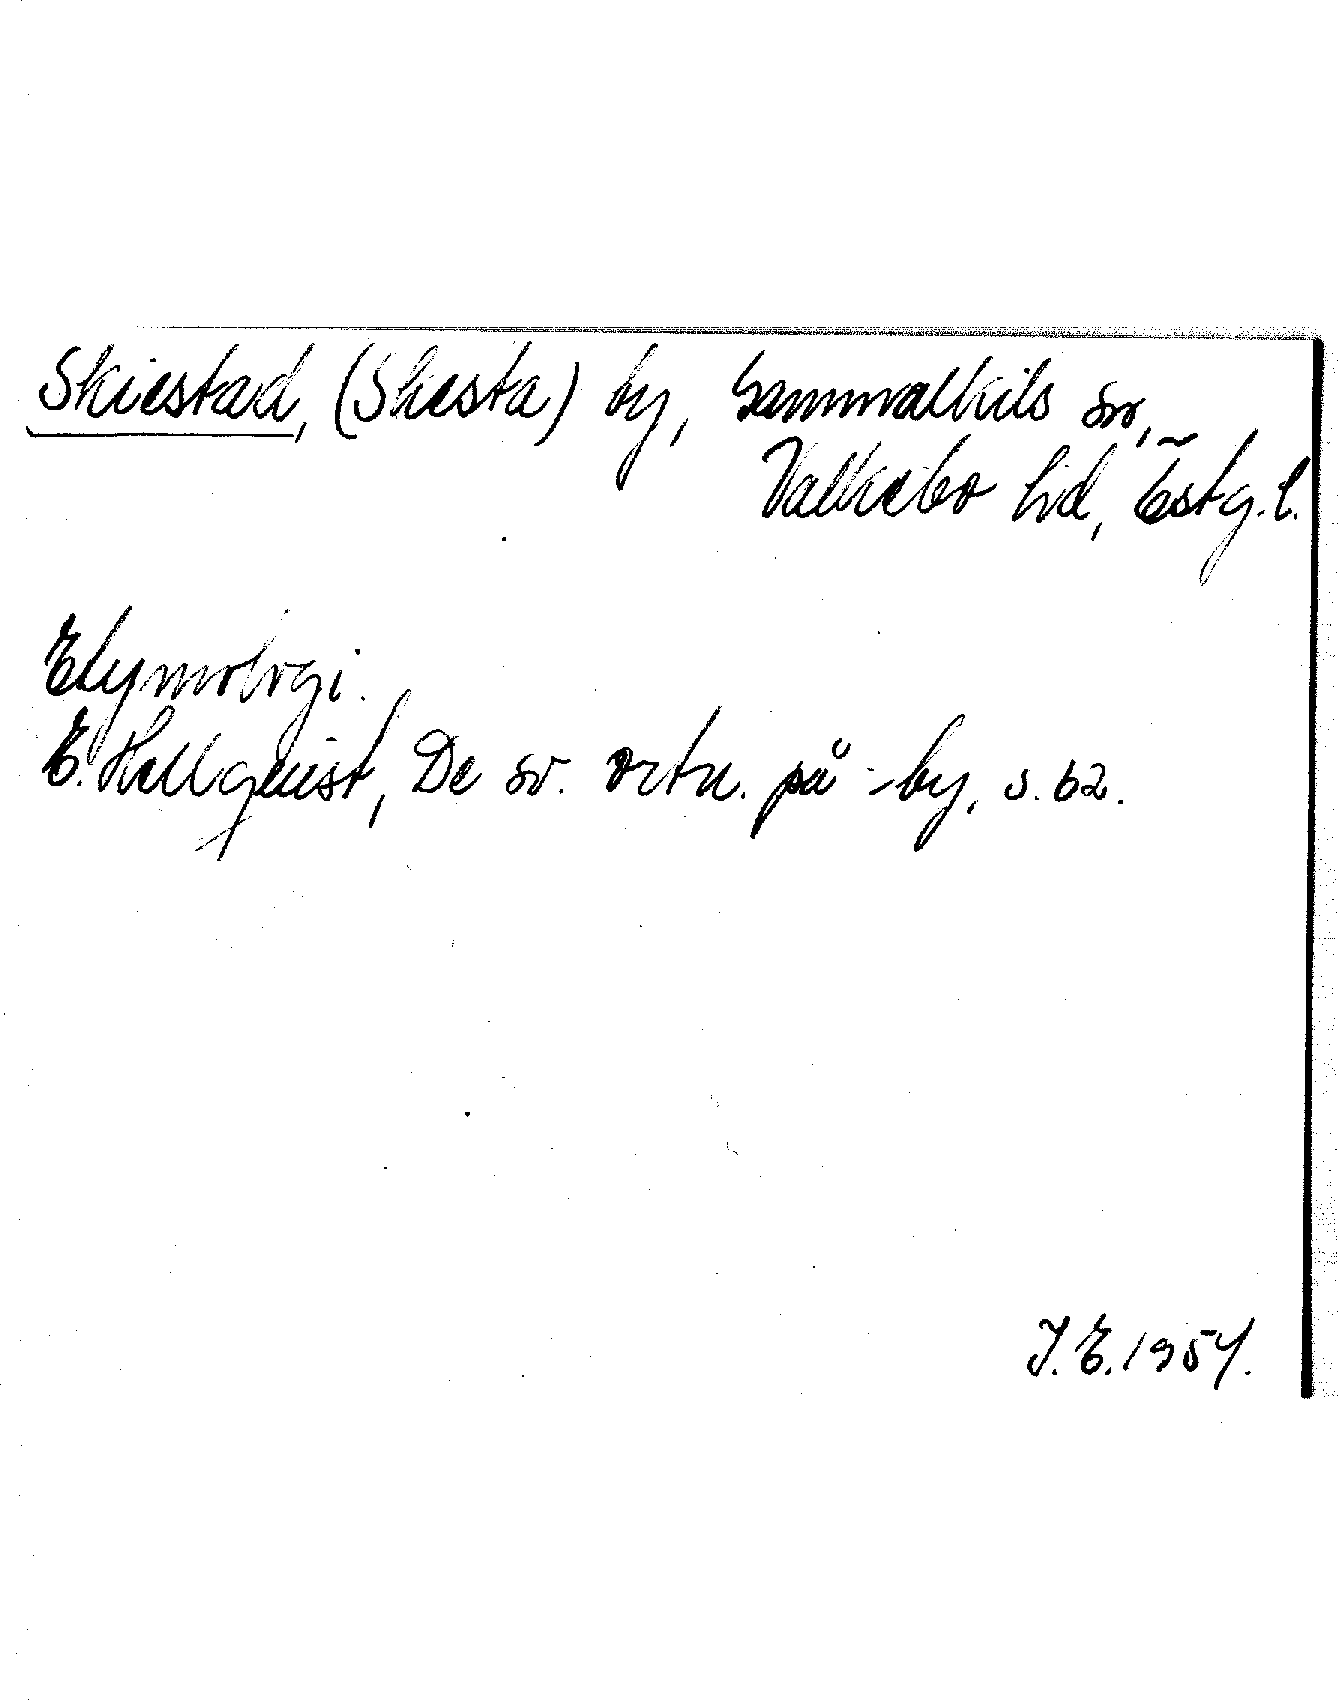 Skiestad, (Skesta) by, Gammalkils sn,
Valkebo hd, Östg. l.
Etymologi.
E. Hellquist, De sv. ortn. på -by, s. 62.
I. E. 1957.